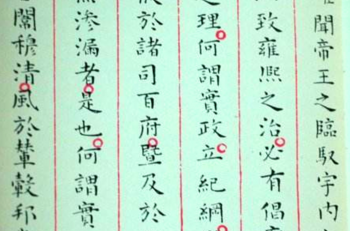 聞帝王之臨馭宇內
致雍熙之治必有倡
之理何謂實政立紀綱
於諸司百府暨及於
滲漏者是也何謂實
闡穆清風於輦轂邦